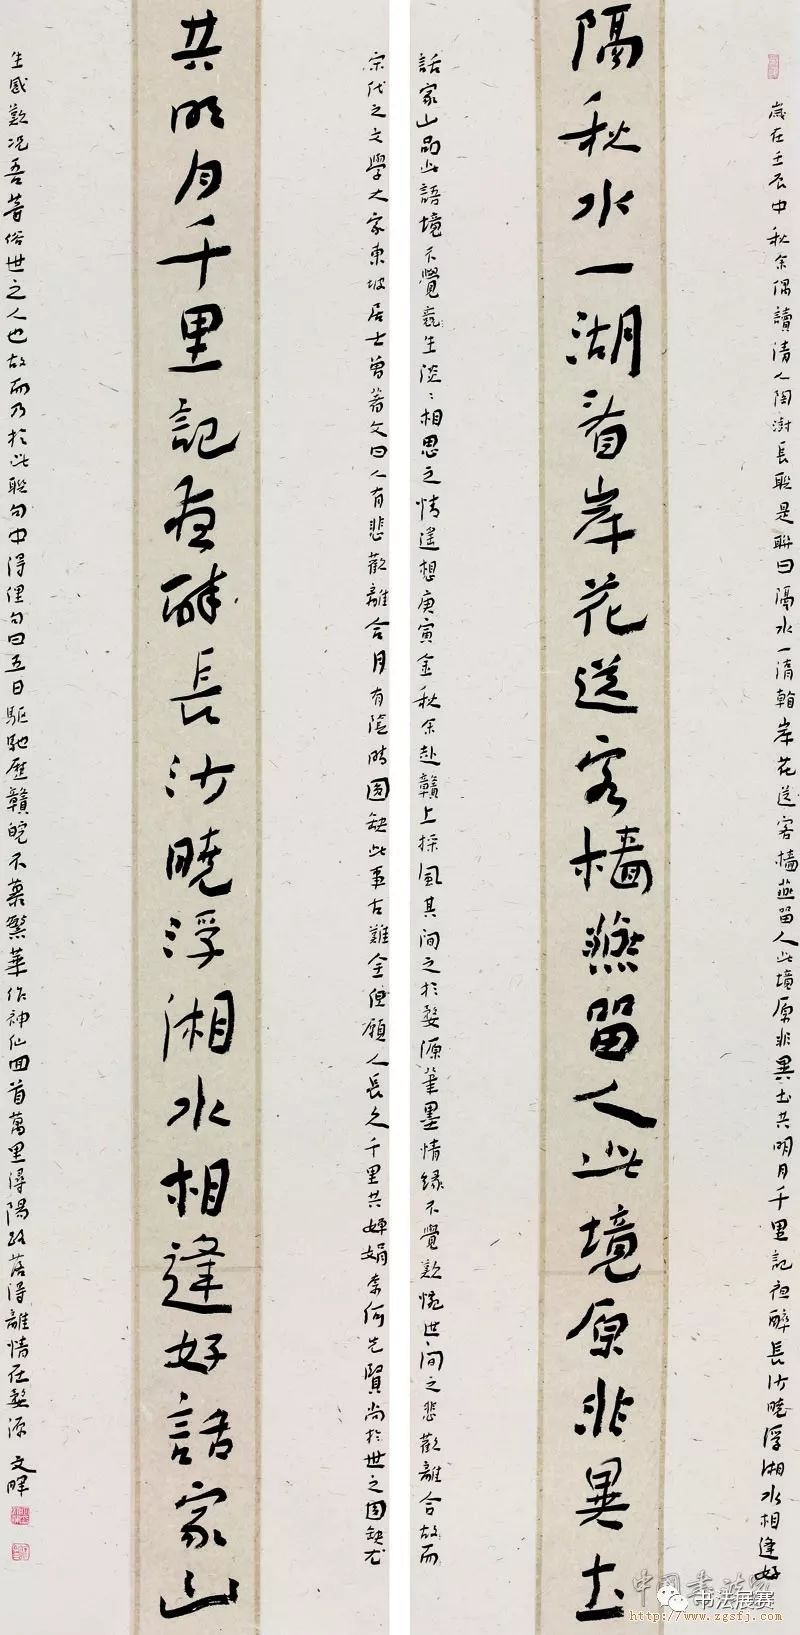 歲在壬辰中秋余偶讀清人陶澍長聯是聯曰隔水一岸花送客檣燕留人此境原非異土共明月千里記夜醉長沙曉浮湘水相逢好
隔秋水一湖看岸花送客檣燕留人此境原非異土
話家山品此語境不覺竟生淡淡相思之情遙想庚寅金秋余赴贛上採風其间之於婺源筆墨情緣不覺歎惋世间之悲歡離合故而
宋代之文學大家東坡居士曾著文曰人有悲歡離合月有陰晴圆缺此事古難全但願人長久千里共婵娟奈何先賢尚於世之圆缺尤
共明月千里記夜醉長沙曉浮湘水相逢好話家山
生感歎况吾等俗世之人也故而乃於此聯句中得俚句曰五日驅馳歷贛皖不慕繁華作神仙回首萬里潯陽路落得離情在婺源 文暉
中国书法家
书法展赛
http://www.zgsfj.com